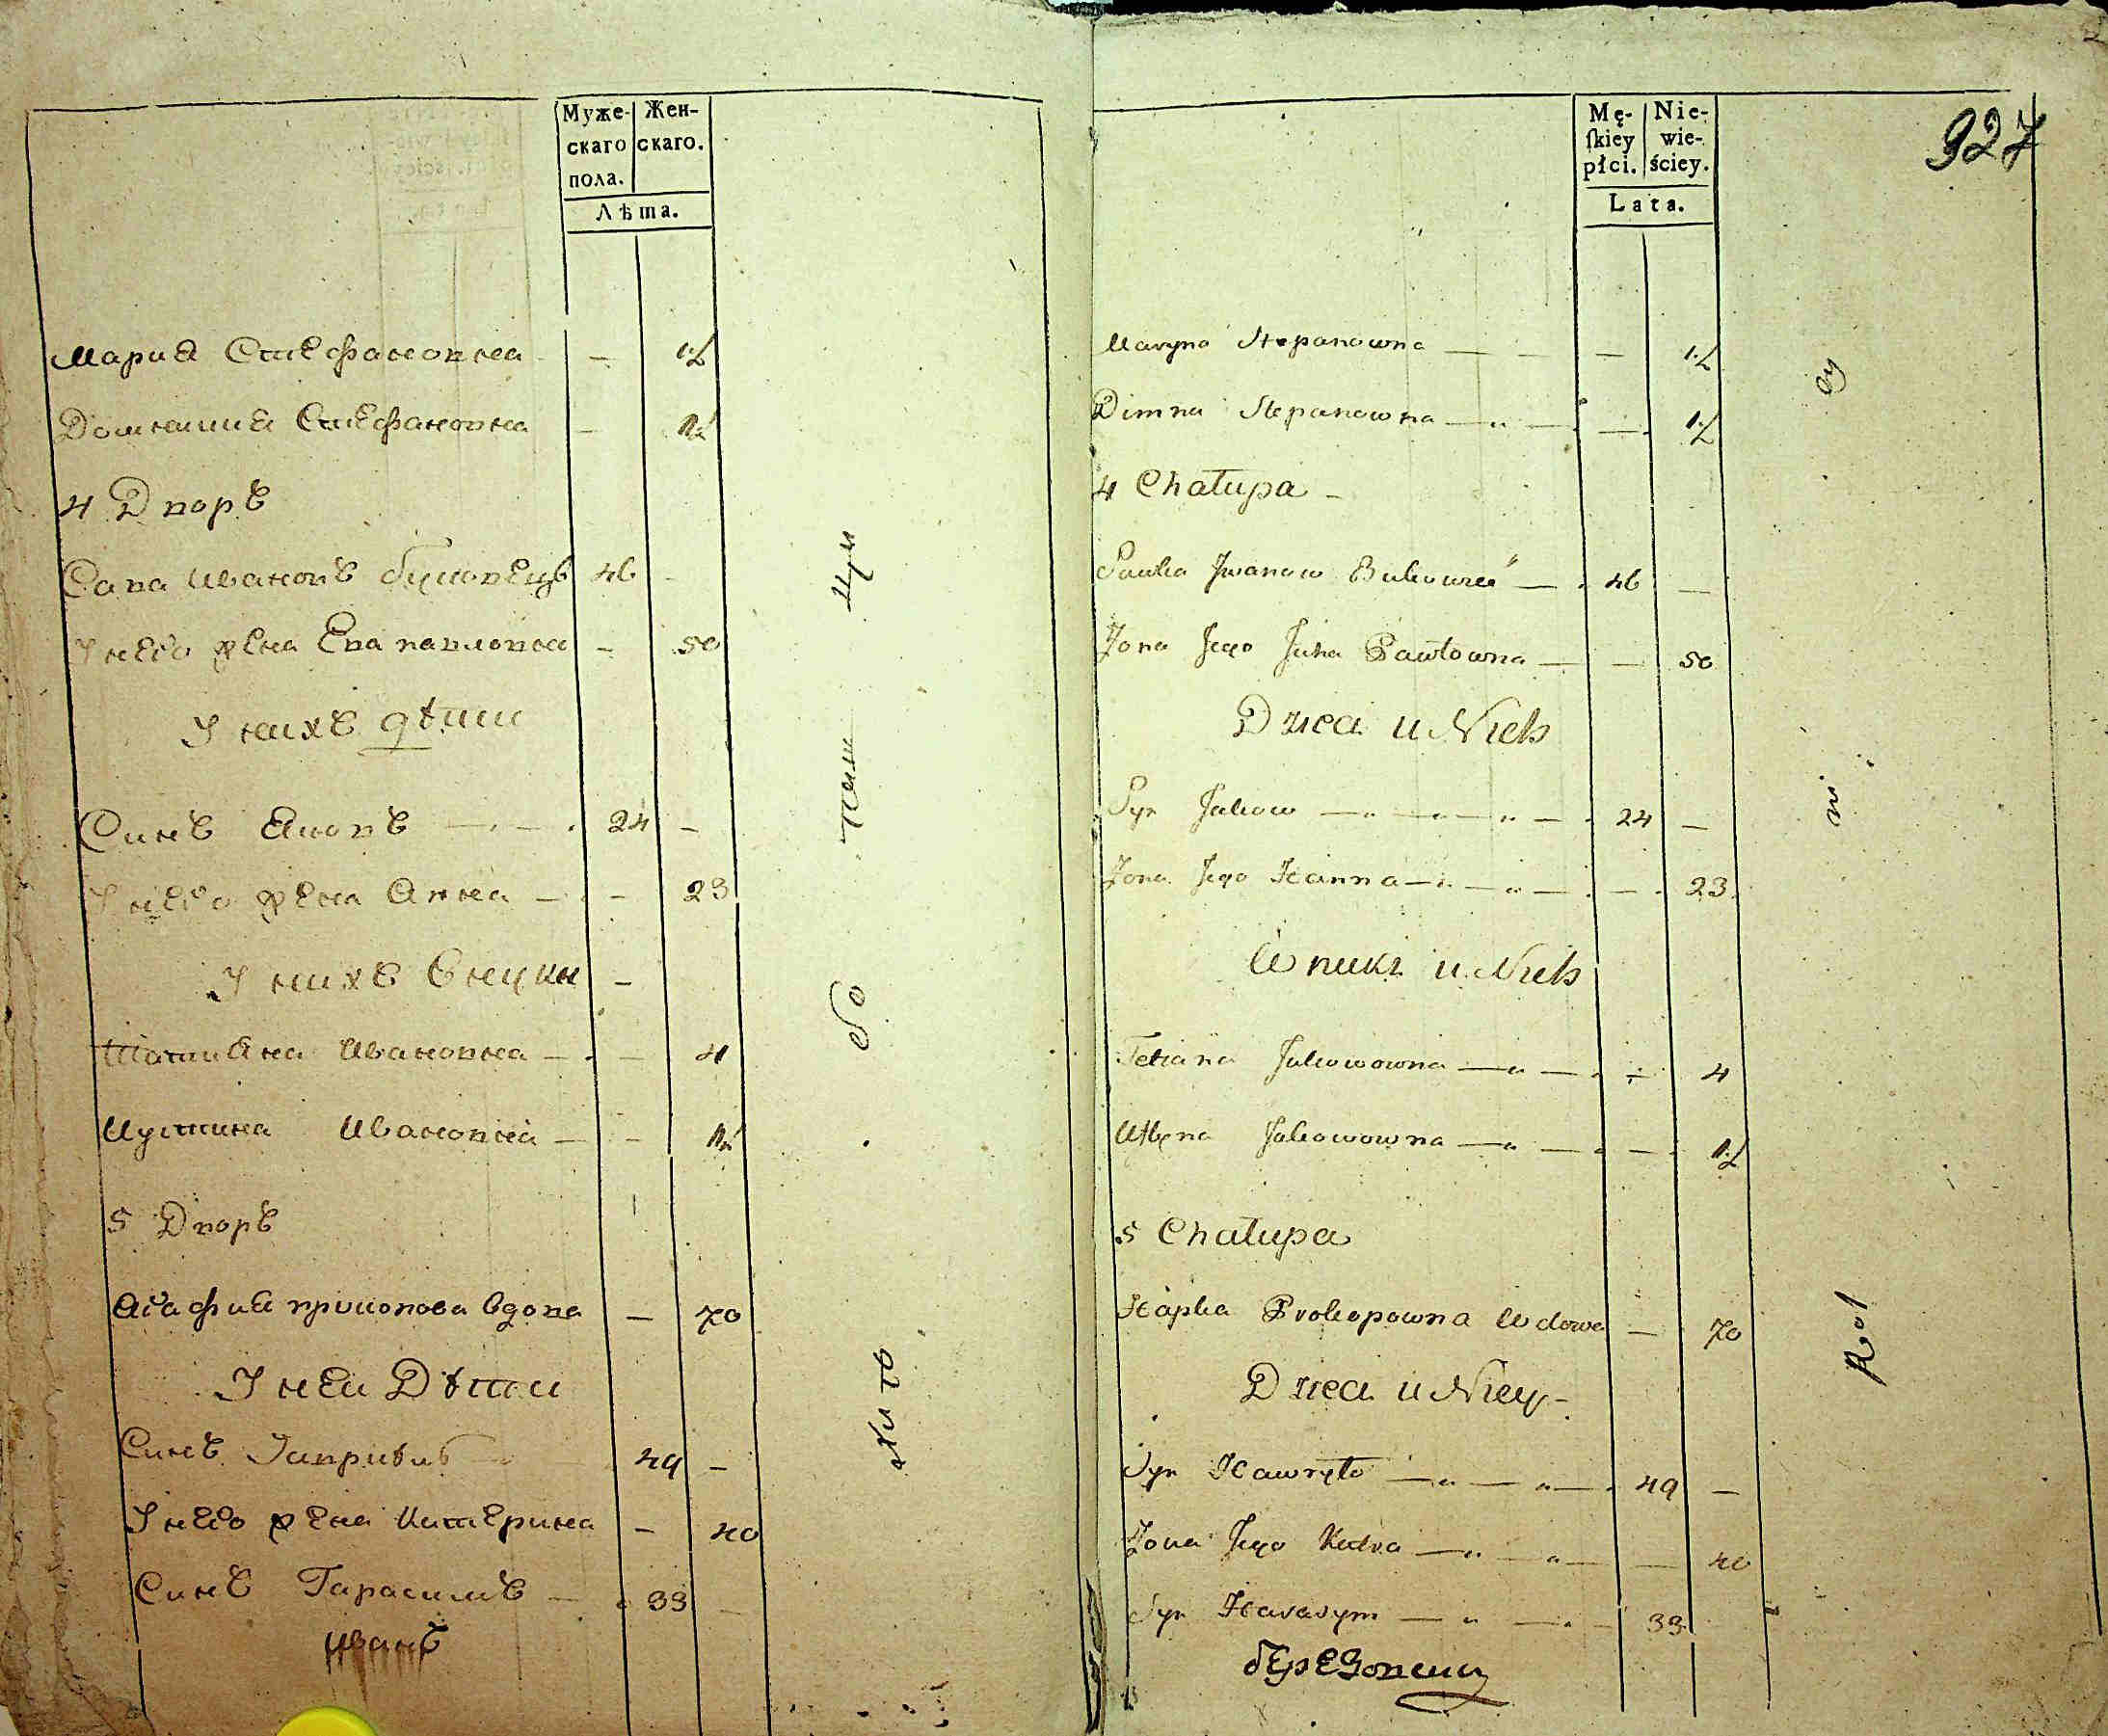 Муже- Жен-
скаго скаго.
пола.
Лѣта.
Мариа Стефановна — 1/2
Домкициа Стефановна — 1/2
4 Дворъ
Сава Ивановъ буковецъ 46 —
У него жена Ева павловна — 50
У нихъ дѣти
Синъ Яковъ — 24 —
У него жена Анна — — 23
У нихъ внуки —
Татиана Ивановна — — 4
Иустина Ивановна — — 1/2
5 Дворъ
Агафиа прокопова вдова — 70
У неи Дѣти
Синъ Гавриілъ — 49 —
У него жена Катерина — 40
Синъ Гарасимъ — 33 —
Иванъ
927
Mę- Nie-
ſkiey wie-
płci. ściey.
Lata.
Maryna Stepanowna — — — 1/2
Dimna Stepanowna — — — 1/2
4 Chałupa —
Sawka Jwanow Bukowiec — 46 —
Żona Jego Jewa Pawłowna — — 50
Dzieci u Nich
Syn Jakow — — — 24 —
Żona Jego Hanna — — — 23
Wnuki u Nich
Tetiana Jakowowna — — — 4
Ustyna Jakowowna — — — 1/2
5 Chałupa
Hapka Prokopowna Wdowa — 70
Dzieci u Niey —
Syn Hawryło — — — 49 —
Żona Jego Katra — — — 40
Syn Harasym — — — 33
березовски